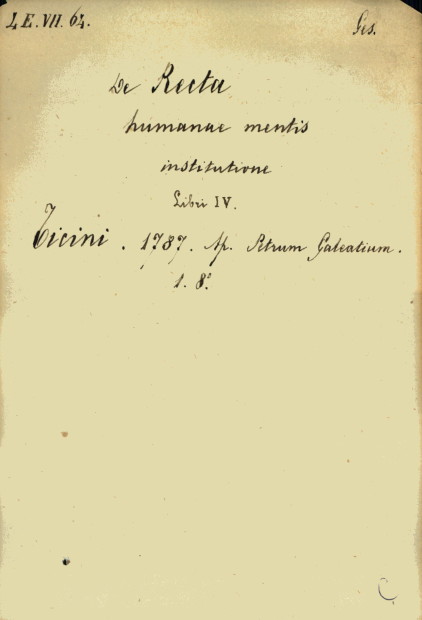 4 E. VII. 64.
Ges.
De Recta
humanae mentis
institutione
Libri IV.
Ticini. 1787. Ap. Petrum Galeatium.
1. 8°
C